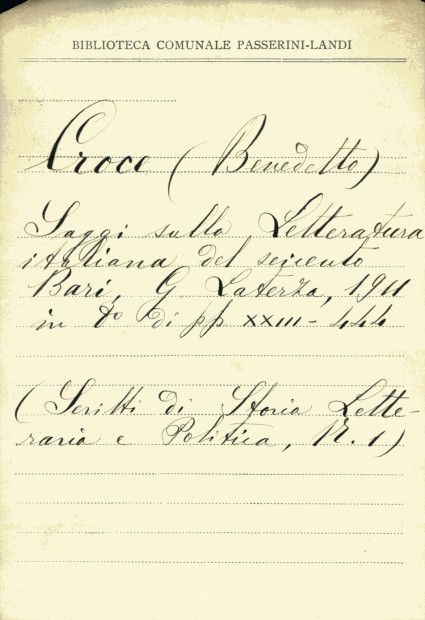 BIBLIOTECA COMUNALE PASSERINI-LANDI
Croce (Benedetto)
Saggi sulla Letteratura
italiana del seicento
Bari, G. Laterza, 1911
in 8° di pp XXIII - 444
(Scritti di Storia Lette-
raria e Politica, N. 1)